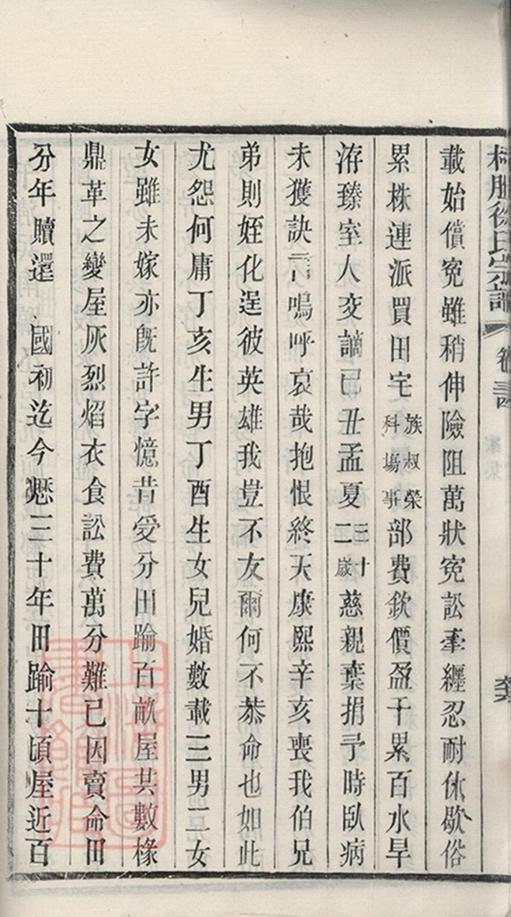 徐氏宗譜
載始償寃雖稍伸險阻萬狀寃訟牽纒忍耐休歇俗
累株連派買田宅族叔榮科塲事部費欽價盈千累百水旱
洊臻室人交謫已丑孟夏三十二歲慈親棄捐予時臥病
未獲訣言嗚呼哀哉抱恨終天康熙辛亥喪我伯兄
弟則姪化逞彼英雄我豈不友爾何不恭命也如此
尤怨何庸丁亥生男丁酉生女兒婚數載三男二女
女雖未嫁亦旣許字憶昔受分田踰百畝屋共數椽
鼎革之變屋灰烈焰衣食訟費萬分難已因賣命田
分年贖還 國初迄今歷三十年田踰十頃屋近百